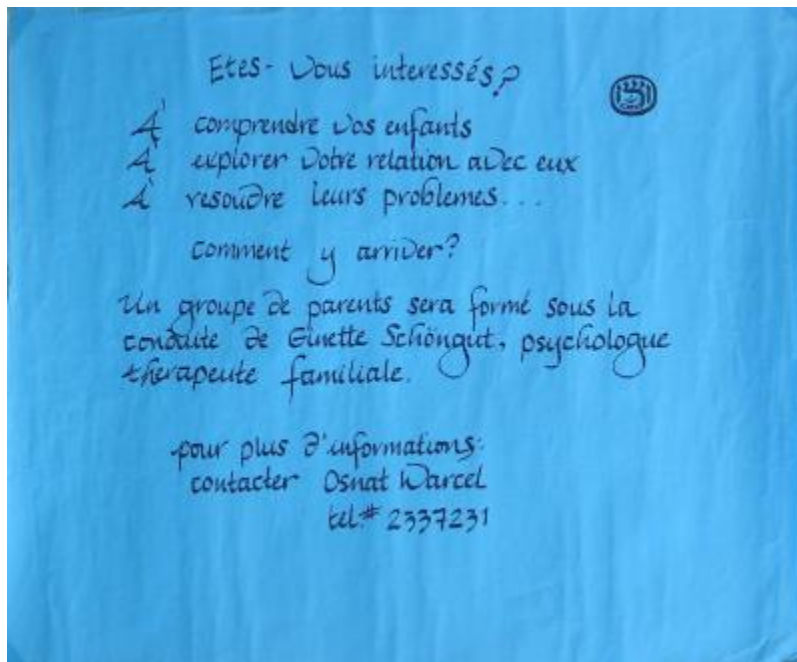 Etes-Vous interessés?
À comprendre vos enfants
À explorer votre relation avec eux
À resoudre leurs problemes...
comment y arriver?
Un groupe de parents sera formé sous la
conduite de Ginette Schöngut, psychologue
therapeute familiale.
pour plus d'informations:
contacter Osnat Warcel
tel.# 2337231